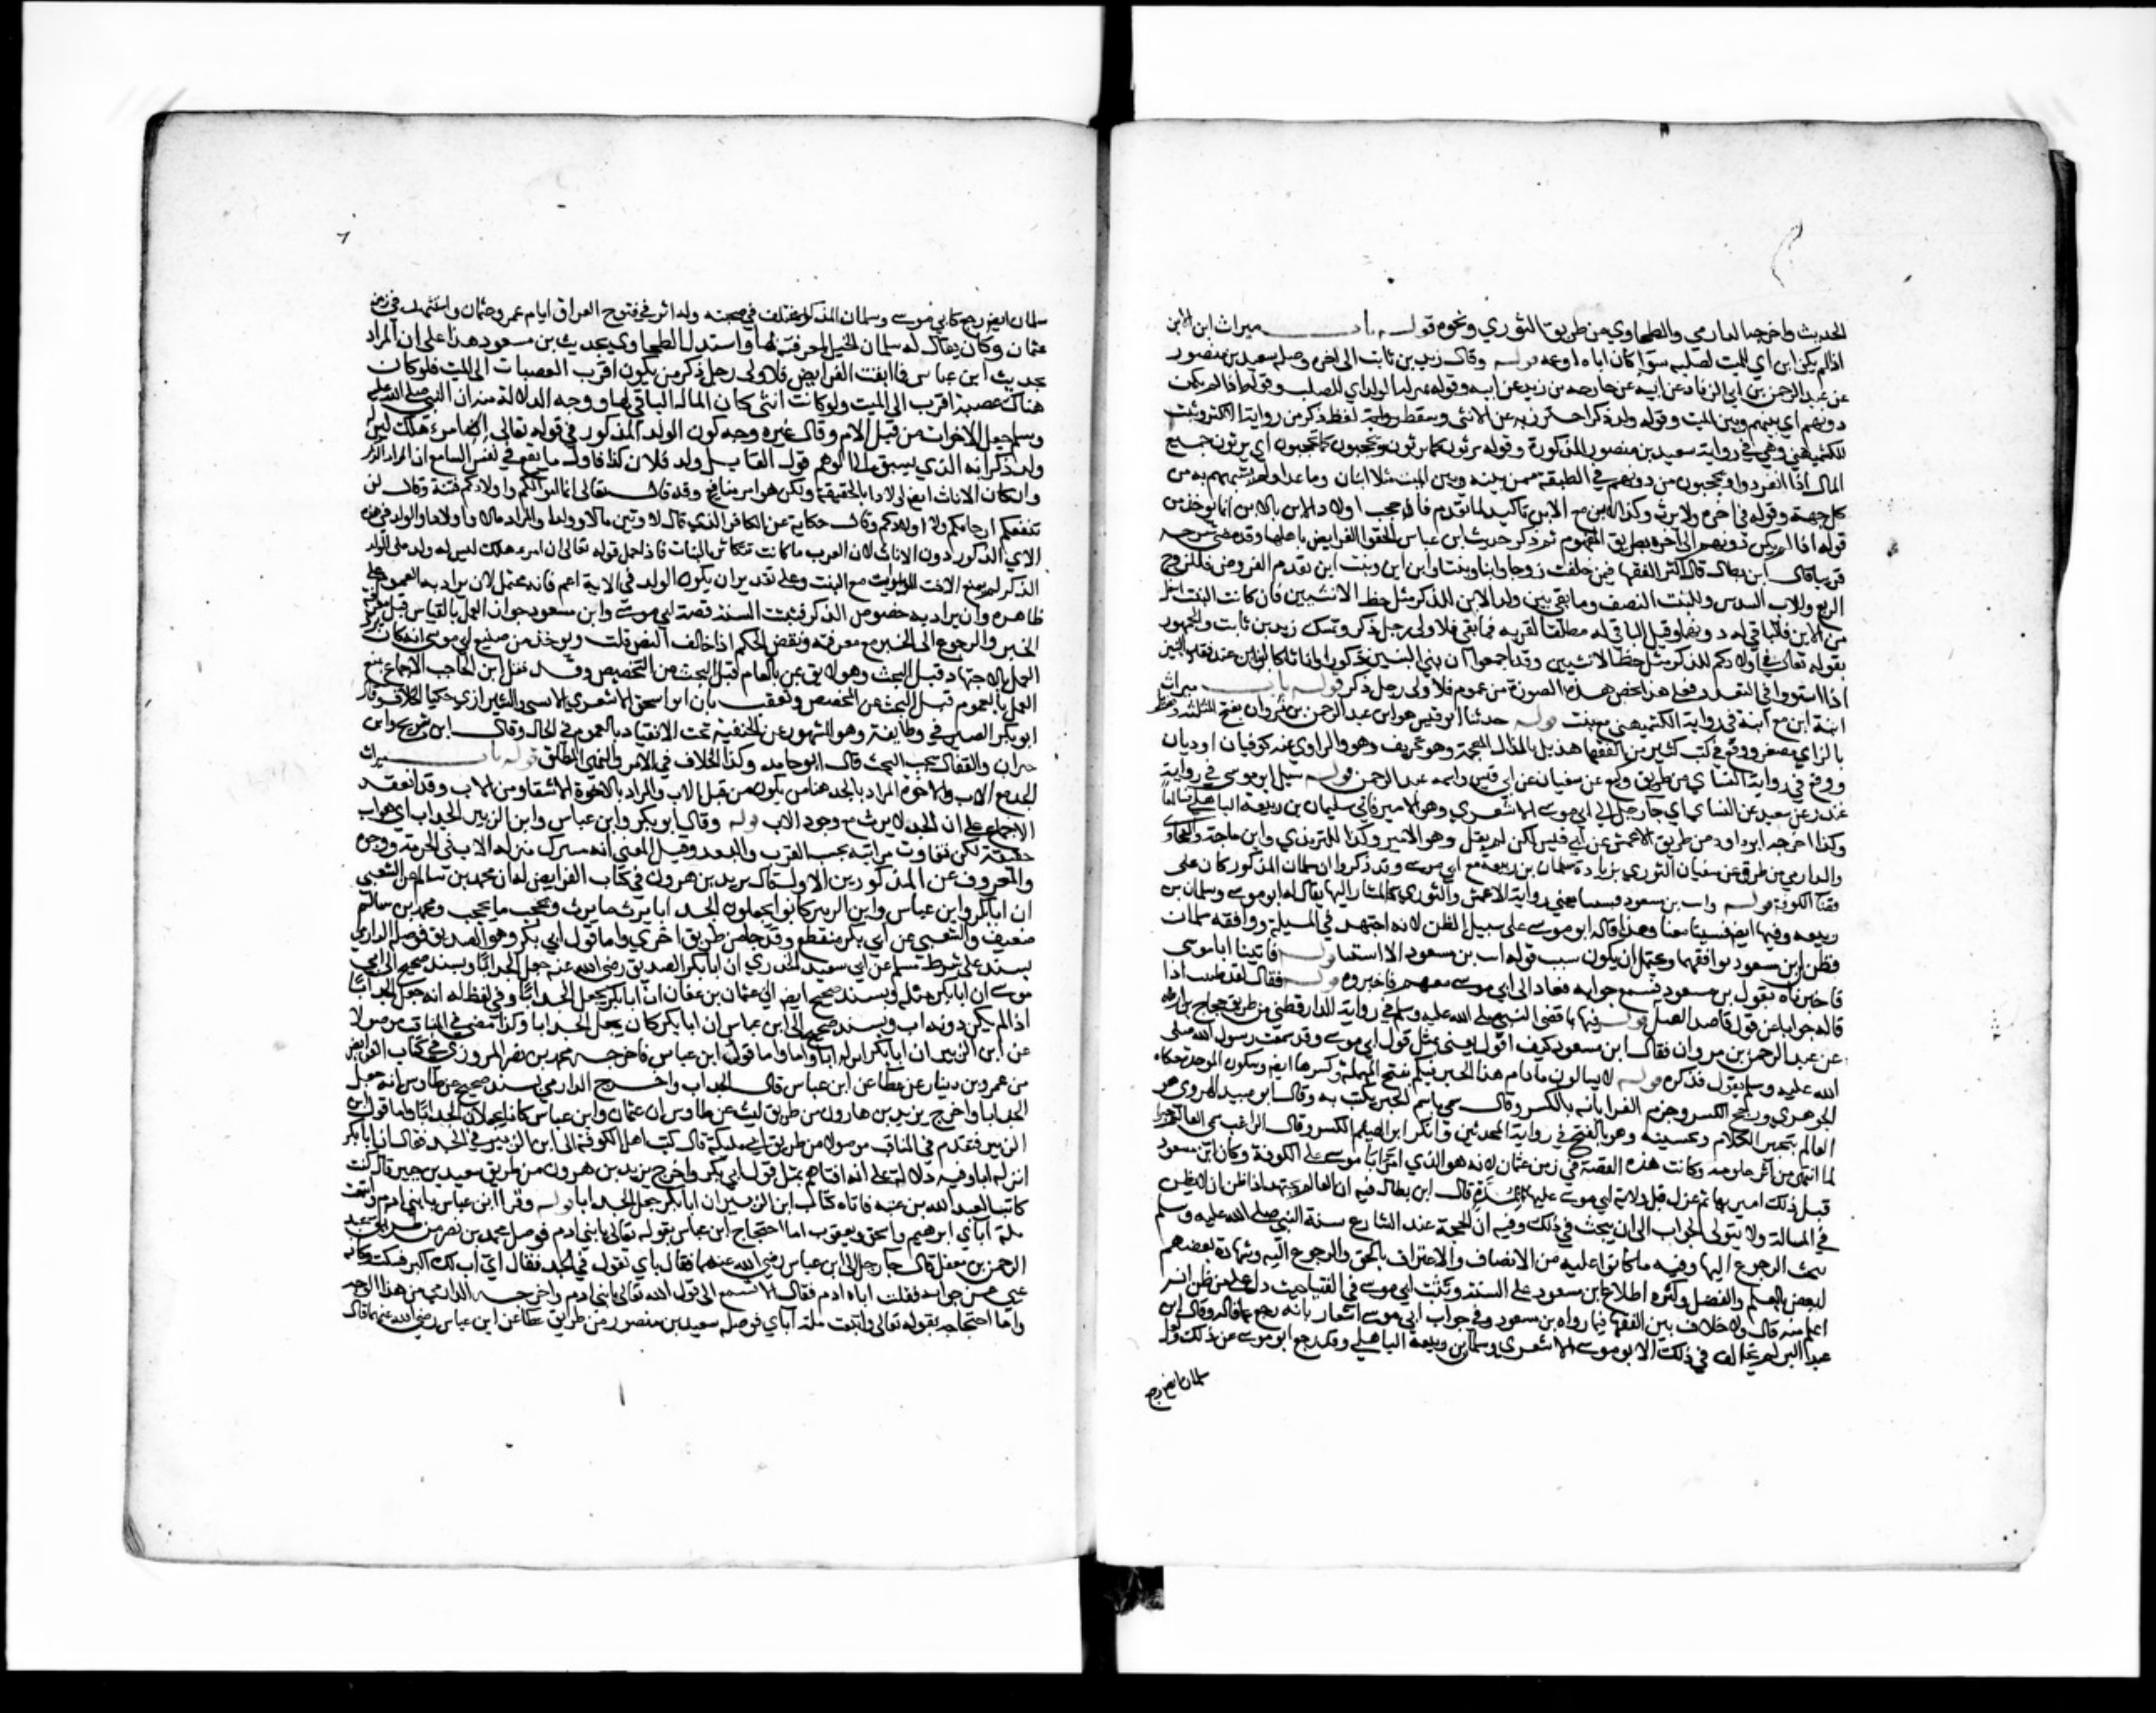 الحديث واخرجه الدارمي والطحاوي من طريق الثوري ونحوه قوله باب ميراث ابن الابن
اذا لم يكن ابن اي للميت لصلبه سوا كان اباه او عمه قوله وقال زيد بن ثابت الى اخره وصله سعيد بن منصور
عن عبد الرحمن بن ابي الزناد عن ابيه عن خارجه بن زيد عن ابيه وقوله بمنزلة الولد اي للصلب وقوله اذا لم يكن
دونهم اي بينهم وبين الميت وقوله ولد ذكر احترز به عن الانثى وسقط لفظ ذكر من رواية الاكثر وثبت
للكشميهني وهي في رواية سعيد بن منصور المذكورة وقوله يرثون كما يرثون ويحجبون كما يحجبون اي يرثون جميع
المال اذا انفردوا ويحجبون من دونهم في الطبقة ممن بينه وبين الميت مثلا اثنان وما عداه ولم يشبههم به من
كل جهة وقوله في اخره ولا يرث ولد الابن مع الابن تاكيد لما تقدم فان حجب اولاد الابن بالابن انما يوخذ من
قوله اذا لم يكن دونهم الى اخره بطريق المفهوم ثم ذكر حديث ابن عباس الحقوا الفرايض باهلها وقد مضى شرحه
قريبا قال ابن بطال قال اكثر الفقها فيمن خلفت زوجا وابا وبنتا وابن ابن وبنت ابن تقدم الفروض فللزوج
الربع وللاب السدس وللبنت النصف وما بقي بين ولد الابن للذكر مثل حظ الانثيين فان كانت البنت اسفل
من الابن فالباقي له دونها وقيل الباقي له مطلقا لقوله فما بقي فلاولى رجل ذكر وتمسك زيد بن ثابت والجمهور
بقوله تعالى في اولادكم للذكر مثل حظ الانثيين وقد اجمعوا ان بني البنين ذكورا واناثا كالبنين عند فقد البنين
اذا استووا في التعدد فعلى هذا تخص هذه الصورة من عموم فلاولى رجل ذكر قوله باب ميراث
ابنة ابن مع ابنة في رواية الكشميهني مع بنت قوله حدثنا ابو قيس هو ابن عبد الرحمن بن ثروان بفتح المثلثة
بالزاي مصغر ووقع في كتب كثير من الفقها هذيل بالذال المعجمة وهو تحريف وهو والراوي عنه كوفيان اوديان
ووقع في رواية النساي من طريق وكيع عن سفيان عن ابي قيس واسمه عبد الرحمن قوله سيل ابو موسى في رواية
غندر عن شعبة عند النساي جا رجل الى ابي موسى الاشعري وهو الامير والى سلمان بن ربيعة الباهلي فسالهما
وكذا اخرجه ابو داود من طريق الاعمش عن ابي قيس لكن لم يقل وهو الامير وكذا للترمذي وابن ماجة والطحاوي
والدارمي من طرق عن سفيان الثوري بزيادة سلمان بن ربيعة مع ابي موسى وقد ذكروا ان سلمان المذكور كان على
قضا الكوفة قوله وات ابن مسعود فسيتابعني في رواية الاعمش والثوري المشار اليها فقال له ابو موسى وسلمان بن
ربيعه وفيها ايضا فسيتابعنا وهذا قاله ابو موسى على سبيل الظن لانه اجتهد في المسيلة ووافقه سلمان
فظن ابن مسعود يوافقهما ويحتمل ان يكون سبب قوله ات بن مسعود الاستثبات قوله فاتينا ابا موسى
فاخبرناه بقول بن مسعود فسمع جوابه فعاد الى ابي موسى معهم فاخبروه قوله فقال لقد ضللت اذا
قاله جوابا عن قول قاصد العمل قوله فيها بما قضى النبي صلى الله عليه وسلم في رواية الدارقطني من طريق حجاج بن ارطاه
عن عبد الرحمن بن مروان فقال ابن مسعود كيف اقول يعني مثل قول ابي موسى وقد سمعت رسول الله صلى
الله عليه وسلم يقول فذكره قوله لا تسالوني ما دام هذا الحبر فيكم بفتح المهملة وكسرها ايضا وسكون الموحدة حكاه
الجوهري ورجح الكسر وجزم الفرا بانه بالكسر وقال سمي باسم الحبر يكتب به وقال ابو عبيد الهروي هو
العالم بتحبير الكلام وتحسينه وهو بالفتح في رواية المحدثين وانكر ابو الهيثم الكسر وقال الراغب سمى العالم حبرا
لما يبقى من اثر علومه وكانت هذه القصة في زمن عثمان لانه هو الذي امر ابا موسى على الكوفة وكان ابن مسعود
قبل ذلك اميرها ثم عزل قبل ولاية ابي موسى عليها بمدة قال ابن بطال فيه ان العالم يجتهد اذا ظن ان لا نص
في المسالة ولا يتولى الجواب الى ان يبحث في ذلك وفيه ان الحجة عند التنازع سنة النبي صلى الله عليه وسلم
يجب الرجوع اليها وفيه ما كانوا عليه من الانصاف والاعتراف بالحق والرجوع اليه وشهادة بعضهم
لبعض بالعلم والفضل وكثره اطلاع ابن مسعود على السنة وتثبت ابي موسى في الفتيا حيث دل على من ظن انه
اعلم منه قال ولا خلاف بين الفقها فيما رواه بن مسعود وفي جواب ابي موسى اشعار بانه رجع عما قاله وقال ابن
عبد البر لم يخالف في ذلك الا ابو موسى الاشعري وسلمان بن ربيعة الباهلي وقد رجع ابو موسى عن ذلك ولعل
سلمان ايضا رجع
سلمان ايضا رجع كابي موسى وسلمان المذكور مختلف في صحبته وله اثر في فتوح العراق ايام عمر وعثمان واستشهد في زمن
عثمان وكان يقال له سلمان الخيل لمعرفته بها واستدل الطحاوي بحديث بن مسعود هذا على ان المراد
بحديث ابن عباس فما ابقت الفرايض فلاولى رجل ذكر من يكون اقرب العصبات الى الميت فلو كان
هناك عصبة اقرب الى الميت ولو كانت انثى كان المال الباقي لها ووجه الدلالة منه ان النبي صلى الله عليه
وسلم جعل الاخوات من قبل الام وقال غيره وجه كون الولد المذكور في قوله تعالى ان امرؤ هلك ليس له
ولد ذكرا انه الذي يسبق الى الوهم قول القايل ولد فلان كذا فاول ما يقع في نفس السامع ان المراد الذكر
وان كان الاناث ايضا اولادا بالحقيقة ولكن هو امر شايع وقد قال تعالى انما اموالكم واولادكم فتنة وقال لن
تنفعكم ارحامكم ولا اولادكم وقال حكاية عن الكافر الذي قال لاوتين مالا وولدا والمراد بالاولاد والولد في هذه
الاي الذكور دون الاناث لان العرب ما كانت تتكاثر بالبنات فاذا حمل قوله تعالى ان امرؤ هلك ليس له ولد على الولد
الذكر لم يمنع الاخت الميراث مع البنت وعلى تقدير ان يكون الولد في الاية اعم فانه يحتمل لان يراد به العموم على
ظاهره وان يراد به خصوص الذكر فبينت السنة قصة ابي موسى وابن مسعود جواز العمل بالقياس قبل معرفة
الخبر والرجوع الى الخبر مع معرفته ونقض الحكم اذا خالف النص قلت ويوخذ من صنيع ابي موسى انه كان يرى
العمل بالاجتهاد قبل البحث وهو لايق بمن يعمل بالعام قبل البحث عن التخصيص وقد نقل ابن الحاجب الاجماع على منع
العمل بالعموم قبل البحث عن المخصص وتعقب بان ابوا اسحق الاسفرايني والشيرازي حكيا الخلاف وقال
ابو بكر الصيرفي وطايفة وهو المشهور عن الحنفية يجب الانقياد بالعموم في الحال وقال ابن شريح وابن
خيران والقفال يجب البحث قال ابو حامد وكذا الخلاف في الامر والنهي المطلق قوله باب ميراث
الجد مع الاب والاخوة المراد بالجد هنا من يكون من قبل الاب والمراد بالاخوة الاشقا ومن الاب وقد انعقد
الاجماع على ان الجد لا يرث مع وجود الاب قوله وقال ابو بكر وابن عباس وابن الزبير الجد اب اي هو اب
حقيقة لكن تتفاوت مراتبه بحسب القرب والبعد وقيل المعنى انه ينزل منزلة الاب في الحرمة ووجوه
والمعروف عن المذكورين الاول قال يزيد بن هرون في كتاب الفرايض له ان محمد بن سالم عن الشعبي
ان ابا بكر وابن عباس وابن الزبير كانوا يجعلون الجد ابا يرث ما يرث ويحجب ما يحجب ومحمد بن سالم
ضعيف والشعبي عن ابي بكر منقطع وقد جا من طريق اخرى واما قول ابي بكر وهو الصديق فوصله الدارمي
بسند على شرط مسلم عن ابي سعيد الخدري ان ابا بكر الصديق رضي الله عنه جعل الجد ابا وبسند صحيح الى ابي
موسى ان ابا بكر مثله وبسند صحيح ايضا الى عثمان بن عفان ان ابا بكر كان يجعل الجد ابا وفي لفظ له انه جعل الجد ابا
اذا لم يكن دونه اب وبسند صحيح الى ابن عباس ان ابا بكر كان يجعل الجد ابا وكذا مضى في المناقب موصولا
عن ابن الزبير ان ابا بكر انزله ابا واما قول ابن عباس فاخرجه محمد بن نصر المروزي في كتاب الفرايض
من عمرو بن دينار عن عطا عن ابن عباس قال الجد اب واخرج الدارمي بسند صحيح عن طاوس انه جعل
الجد ابا واخرج يزيد بن هارون من طريق ليث عن طاوس ان عثمان وابن عباس كانا يجعلان الجد ابا واما قول ابن
الزبير فتقدم في المناقب موصولا من طريق ابن ابي مليكة قال كتب اهل الكوفة الى ابن الزبير في الجد فقال ان ابا بكر
انزله ابا وفيه دلالة على انه افتاهم بمثل قول ابي بكر واخرج يزيد بن هرون من طريق سعيد بن جبير قال كنت
كاتبا لعبد الله بن عتبه فاتاه كتاب ابن الزبير ان ابا بكر جعل الجد ابا قوله وقرا ابن عباس يا بني ادم واتبعت
ملة اباي ابرهيم واسحق ويعقوب اما احتجاج ابن عباس بقوله تعالى يا بني ادم فوصله محمد بن نصر من طريق عبد
الرحمن بن معقل قال جا رجل الى ابن عباس رضي الله عنهما فقال باي تقول في الجد فقال اي اب لك اكبر فسكت وكانه
عيي عن جوابه فقلت اباه ادم فقال الا تسمع الى قول الله تعالى يا بني ادم واخرجه الدارمي من هذا الوجه
واما احتجاجه بقوله تعالى واتبعت ملة آباي فوصله سعيد بن منصور من طريق عطا عن ابن عباس رضي الله عنهما قال